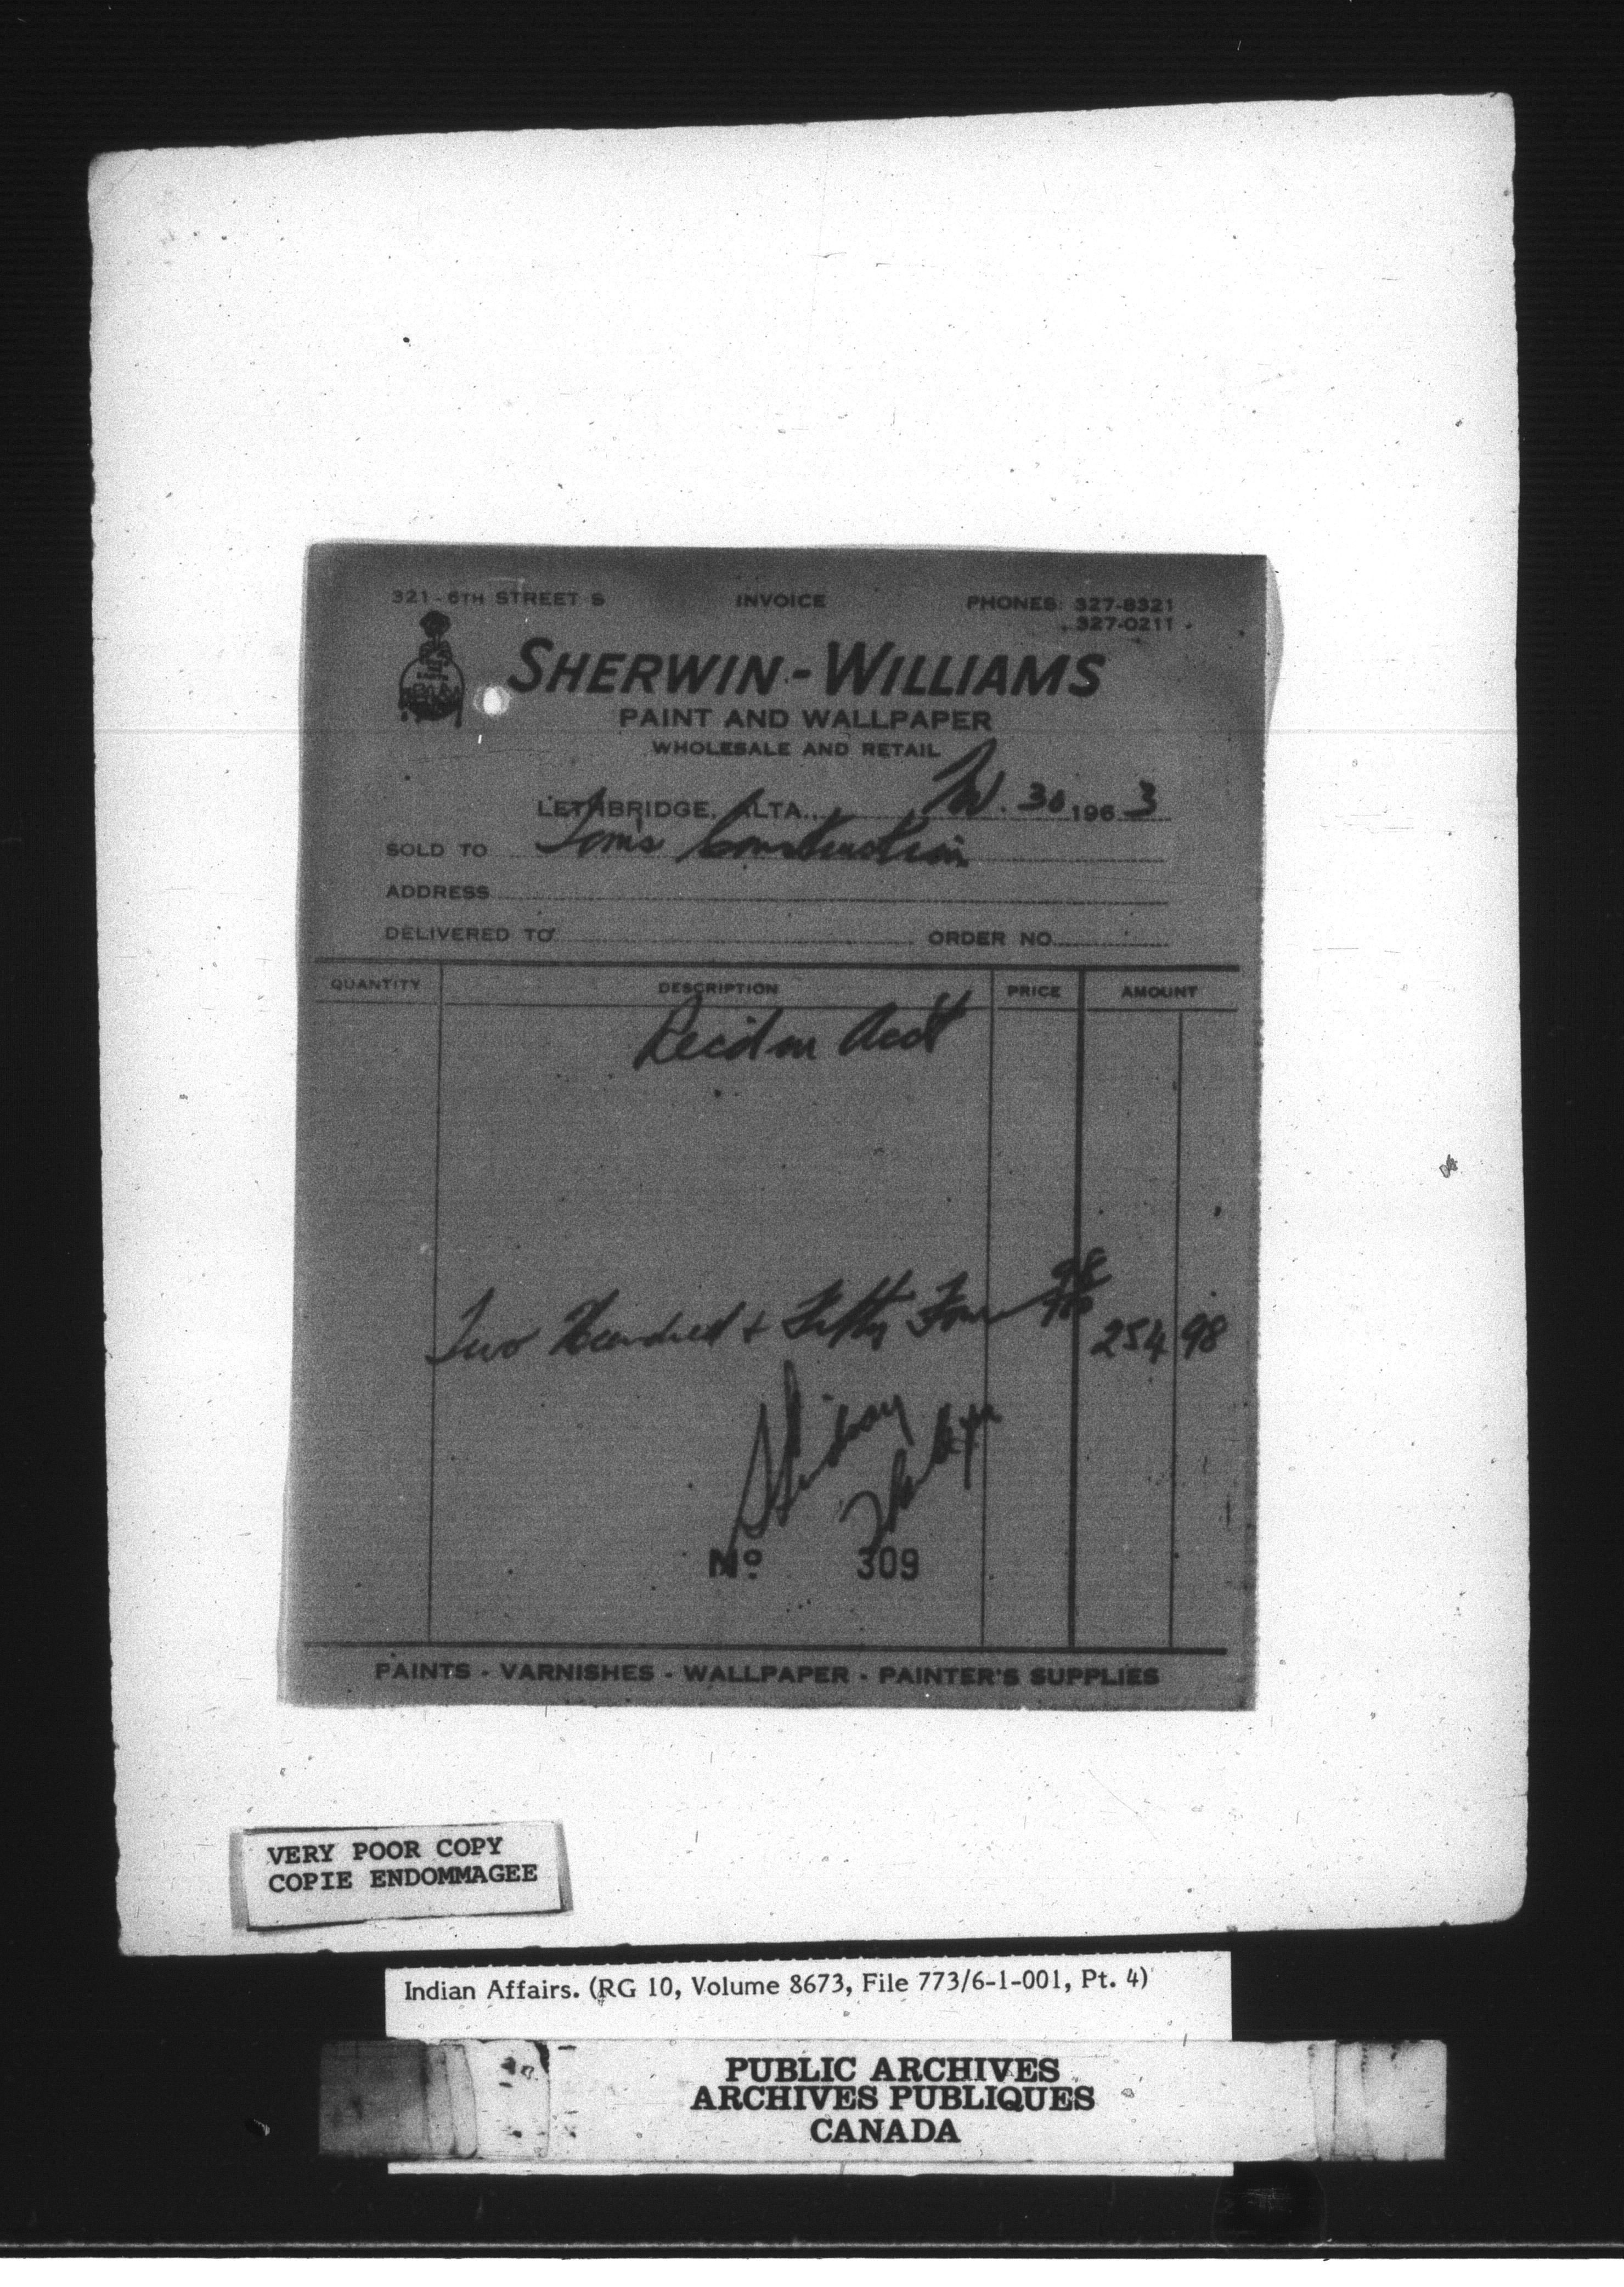 321 - 6TH STREET S INVOICE PHONES: 327-8321
327-0211
SHERWIN-WILLIAMS
PAINT AND WALLPAPER
WHOLESALE AND RETAIL
LETHBRIDGE, ALTA., Nov. 30 1963
SOLD TO Tom's Construction
ADDRESS
DELIVERED TO ORDER NO.
QUANTITY DESCRIPTION PRICE AMOUNT
Rec'd on Acct
Two Hundred & Fifty Four 98/100 254 98
No 309
PAINTS - VARNISHES - WALLPAPER - PAINTER'S SUPPLIES
VERY POOR COPY
COPIE ENDOMMAGEE
Indian Affairs. (RG 10, Volume 8673, File 773/6-1-001, Pt. 4)
PUBLIC ARCHIVES
ARCHIVES PUBLIQUES
CANADA